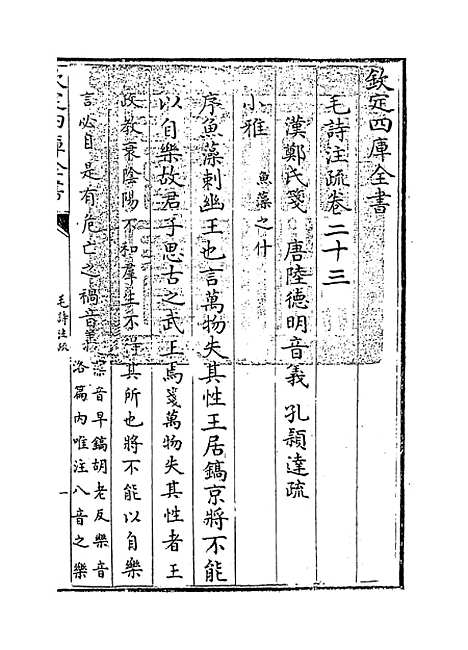 欽定四庫全書
毛詩注疏卷二十三
漢鄭氏箋 唐陸德明音義 孔穎達疏
小雅 魚藻之什
序魚藻刺幽王也言萬物失其性王居鎬京將不能
以自樂故君子思古之武王焉箋萬物失其性者王
政教衰陰陽不和羣生不得其所也將不能以自樂
言必自是有危亡之禍音義
藻音早鎬胡老反樂音
洛篇内唯注八音之樂
欽定四庫全書
毛詩注疏
一